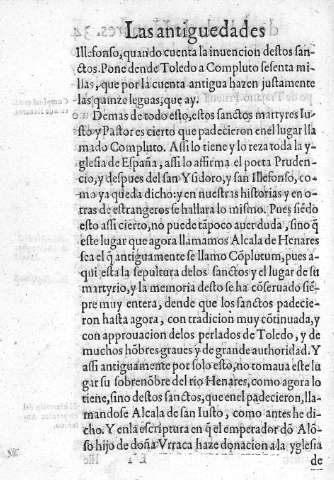 Las antiguedades
Illefonso, quando cuenta la inuencion destos san-
ctos. Pone dende Toledo a Compluto sesenta mi-
llas, que por la cuenta antigua hazen justamente
las quinze leguas, que ay.
Demas de todo esto, estos sanctos martyres Iu-
sto y Pastor es cierto que padecieron en el lugar lla
mado Compluto. Assi lo tiene y lo reza toda la y-
glesia de España, assi lo affirma el poeta Pruden-
cio, y despues del san Ysidoro, y san Illefonso, co-
mo ya queda dicho: y en nuestras historias y en o-
tras de estrangeros se hallara lo mismo. Pues siẽdo
esto assi cierto, no puede tãpoco auer duda, sino q̃
este lugar que agora llamamos Alcala de Henares
sea el q̃ antiguamente se llamo Cõplutum, pues a-
qui esta la sepultura delos sanctos y el lugar de su
martyrio, y la memoria desto se ha cõseruado siẽ-
pre muy entera, dende que los sanctos padecie-
ron hasta agora, con tradicion muy cõtinuada, y
con approuacion delos perlados de Toledo, y de
muchos hõbres graues y de grande authoridad. Y
assi antiguamente por solo esto, no tomaua este lu
gar su sobrenõbre del rio Henares, como agora lo
tiene, sino destos sanctos, que en el padecieron, lla-
mandose Alcala de san Iusto, como antes he di-
cho. Y en la escriptura en q̃ el emperador dõ Alõ-
so hijo de doña Vrraca haze donacion a la yglesia
de